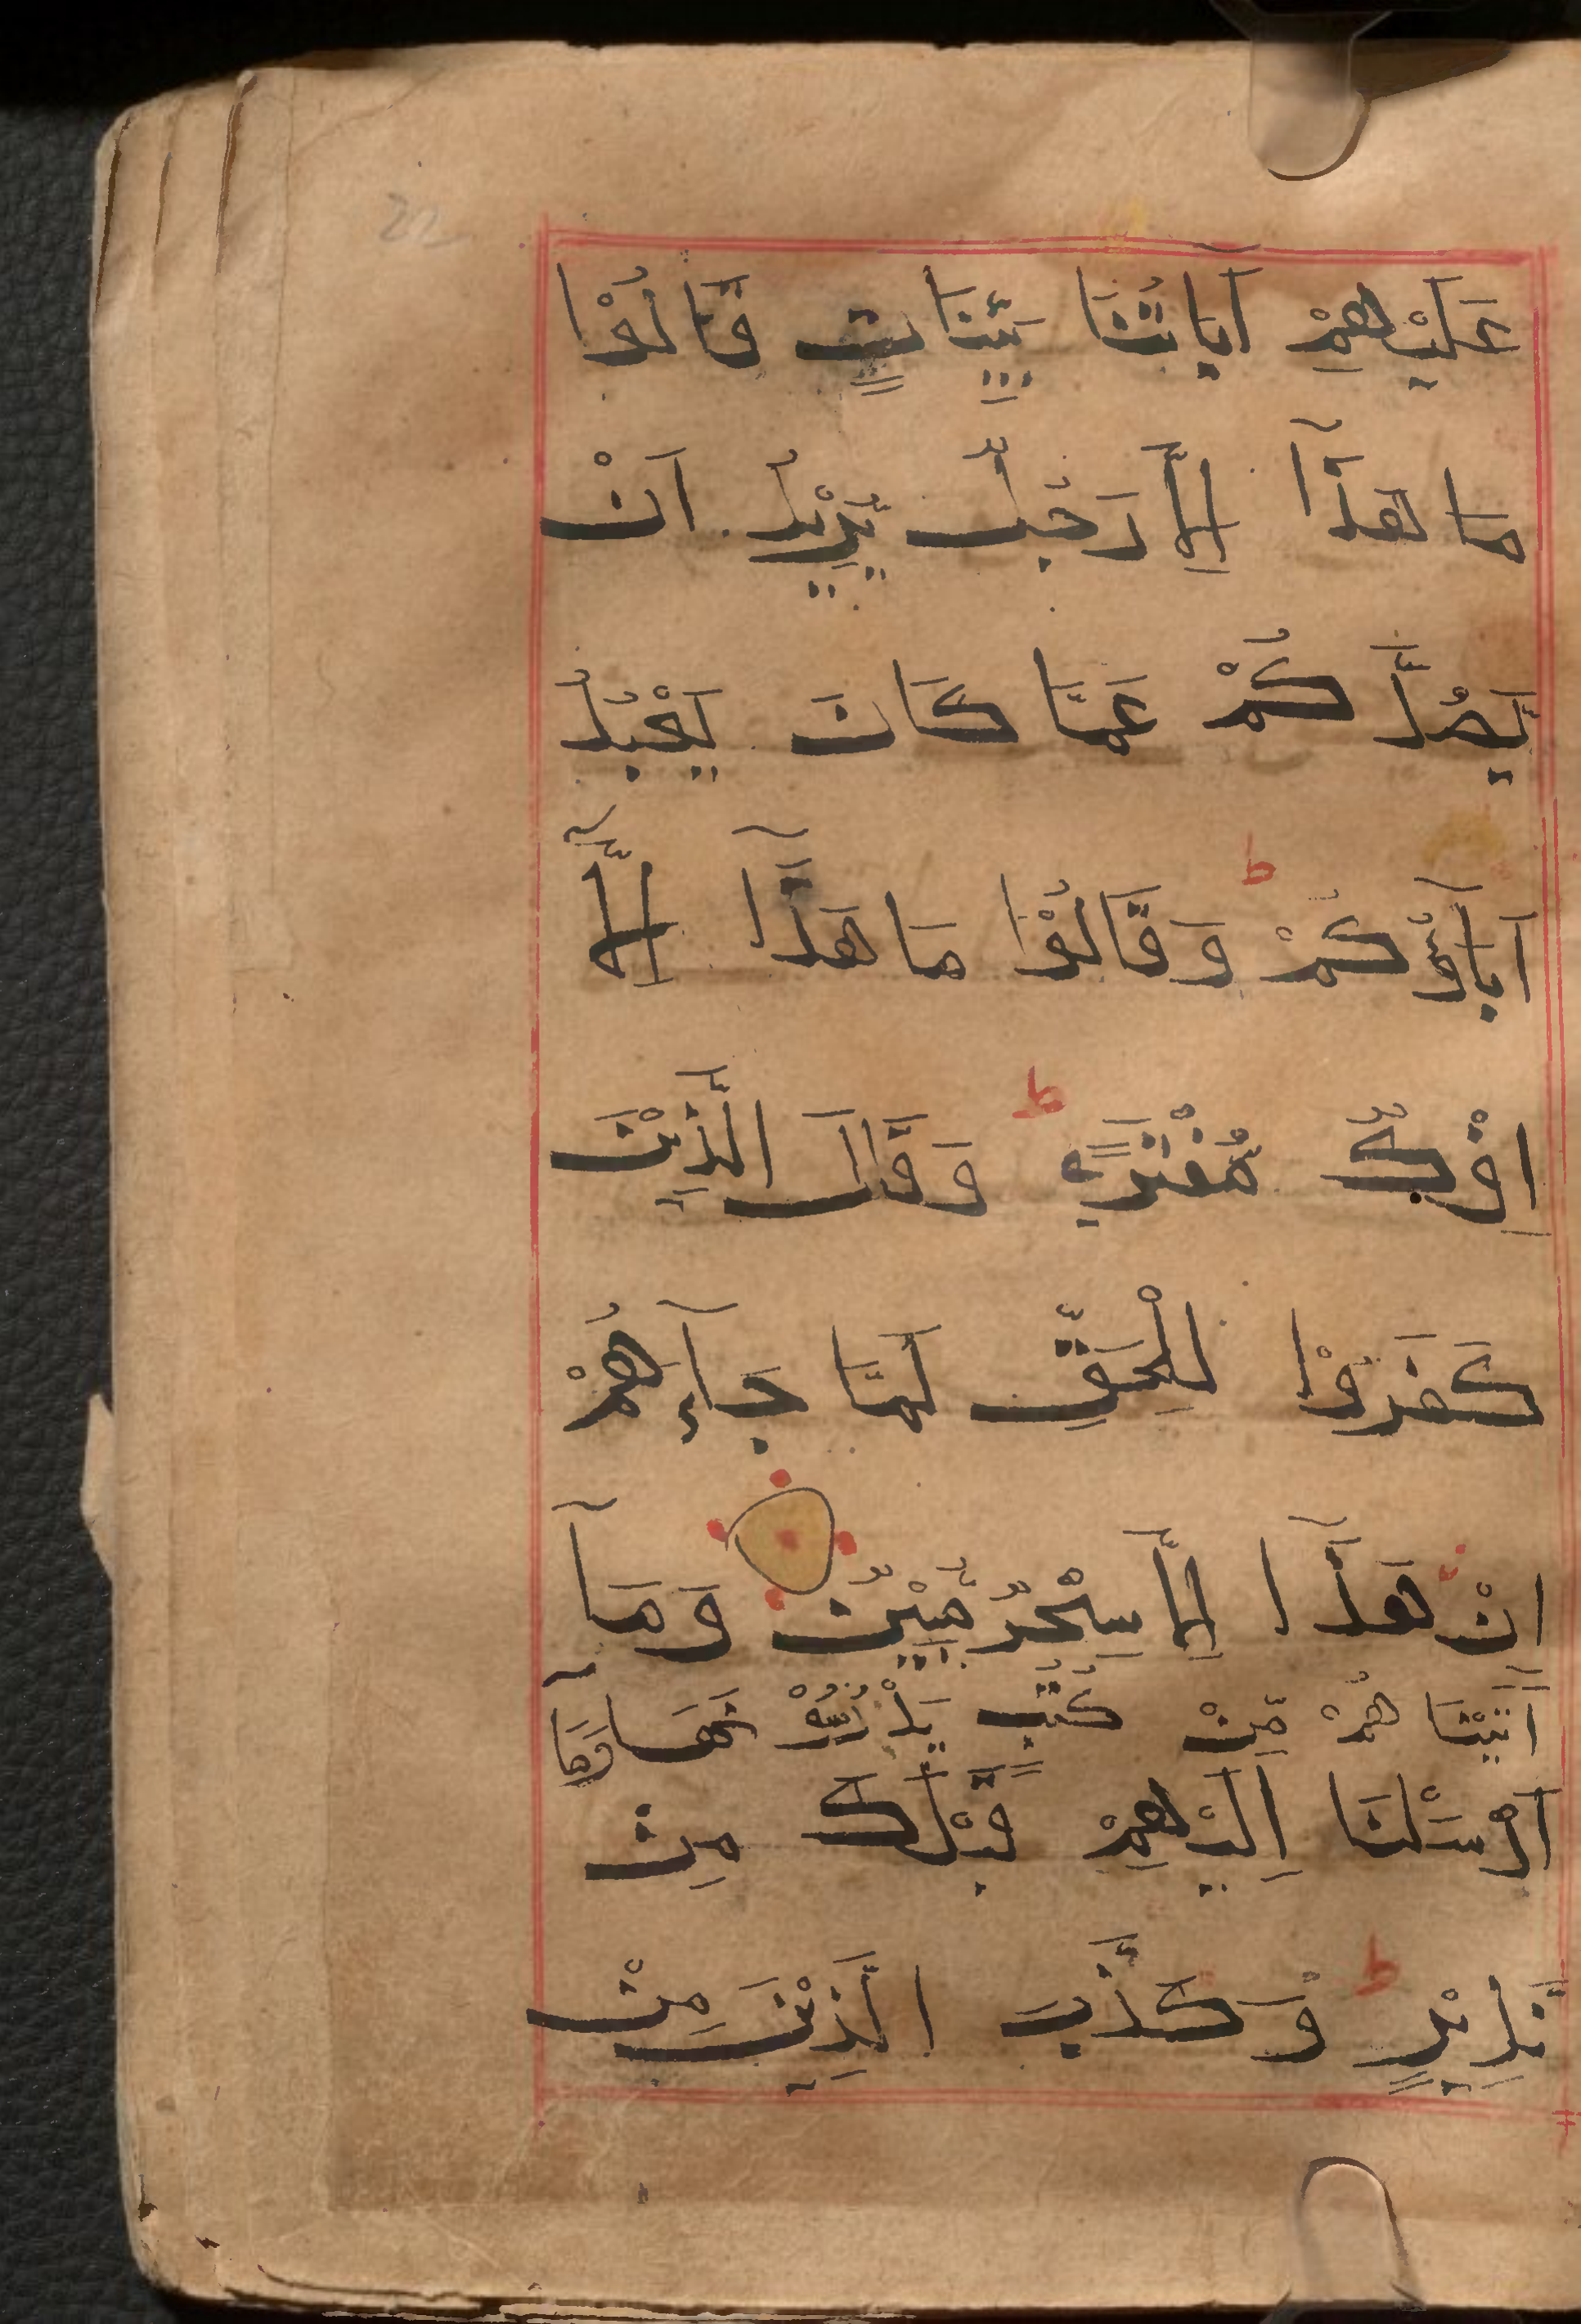 عَلَيْهِمْ آيَاتُنَا بَيِّنَاتٍ قَالُوْا
مَا هَذَآ اِلَّا رَجُلٌ يُّرِيْدُ اَنْ
يَّصُدَّكُمْ عَمَّا كَانَ يَعْبُدُ
آبَآؤُكُمْ ط وَقَالُوْا مَا هَذَآ اِلَّآ
اِفْكٌ مُّفْتَرًى ط وَقَالَ الَّذِيْنَ
كَفَرُوْا لِلْحَقِّ لَمَّا جَآءَهُمْ
اِنْ هَذَآ اِلَّا سِحْرٌ مُّبِيْنٌ وَمَآ
آتَيْنَا هُمْ مِّنْ كُتُبٍ يَدْرُسُوْنَهَا وَمَآ
اَرْسَلْنَا اِلَيْهِمْ قَبْلَكَ مِنْ
نَّذِيْرٍ ط وَكَذَّبَ الَّذِيْنَ مِنْ